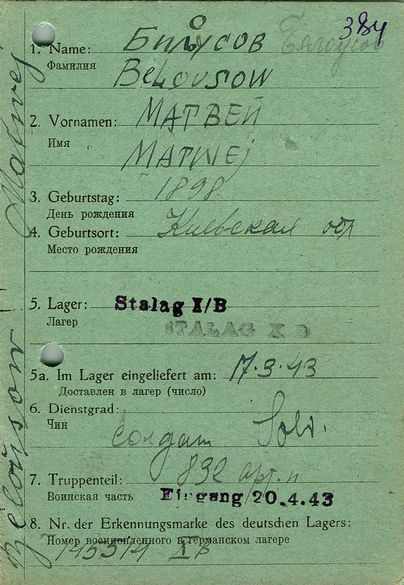 384
1. Name: Билоусов Белоусов
Фамилия
BĖLOUSOW
2. Vornamen: МАТВЕЙ
Имя
MATWEJ
3. Geburtstag: 1898
День рождения
4. Geburtsort: Киевская обл
Место рождения
5. Lager: Stalag X/B
Лагер STALAG X D
5a. Im Lager eingeliefert am: 17.3.43
Доставлен в лагер (число)
6. Dienstgrad:
Чин
Солдат Sold.
7. Truppenteil: 832 арт. п
Воинская часть Eingang 20.4.43
8. Nr. der Erkennungsmarke des deutschen Lagers:
Номер военнопленного в германском лагере
XB
Belousow Matwej